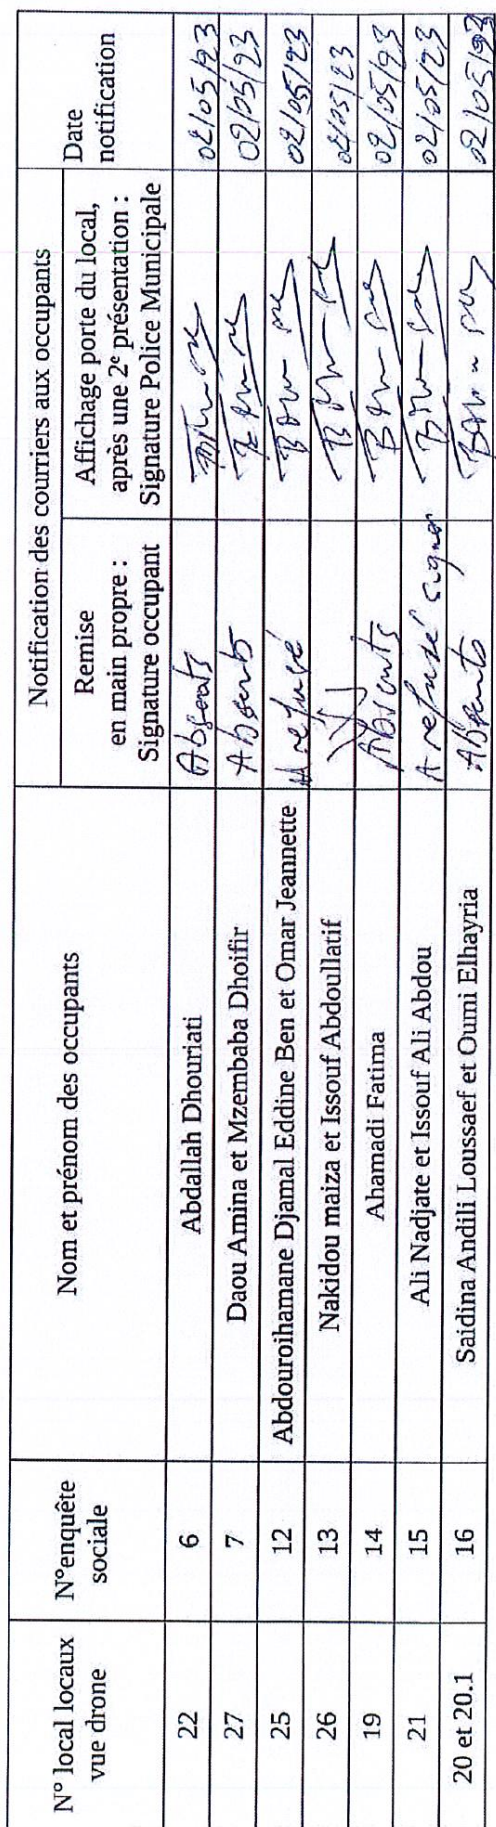 N° local locaux vue drone | N°enquête sociale | Nom et prénom des occupants | Notification des courriers aux occupants
Remise en main propre : Signature occupant | Affichage porte du local, après une 2e présentation : Signature Police Municipale | Date notification
22 | 6 | Abdallah Dhouriati | Absents | 02/05/23
27 | 7 | Daou Amina et Mzembaba Dhoifir | Absents | 02/05/23
25 | 12 | Abdouroihamane Djamal Eddine Ben et Omar Jeannette | A refusé | 02/05/23
26 | 13 | Nakidou maiza et Issouf Abdoullatif | 02/05/23
19 | 14 | Ahamadi Fatima | Absents | 02/05/23
21 | 15 | Ali Nadjate et Issouf Ali Abdou | A refusé signer | 02/05/23
20 et 20.1 | 16 | Saidina Andili Loussaef et Oumi Elhayria | Absents | 02/05/23